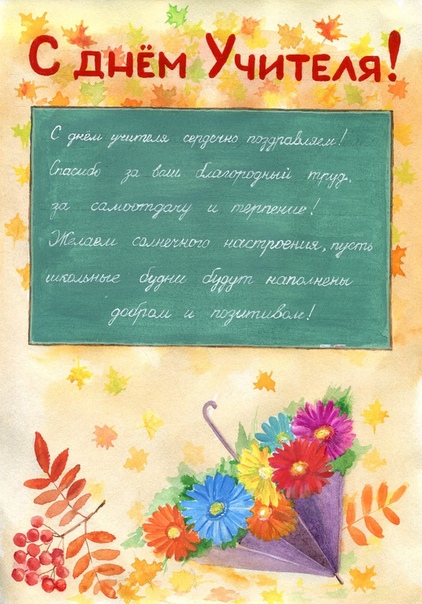 С днём Учителя!
С днём учителя сердечно поздравляем!
Спасибо за ваш благородный труд,
за самоотдачу и терпение!
Желаем солнечного настроения, пусть
школьные будни будут наполнены
добром и позитивом!